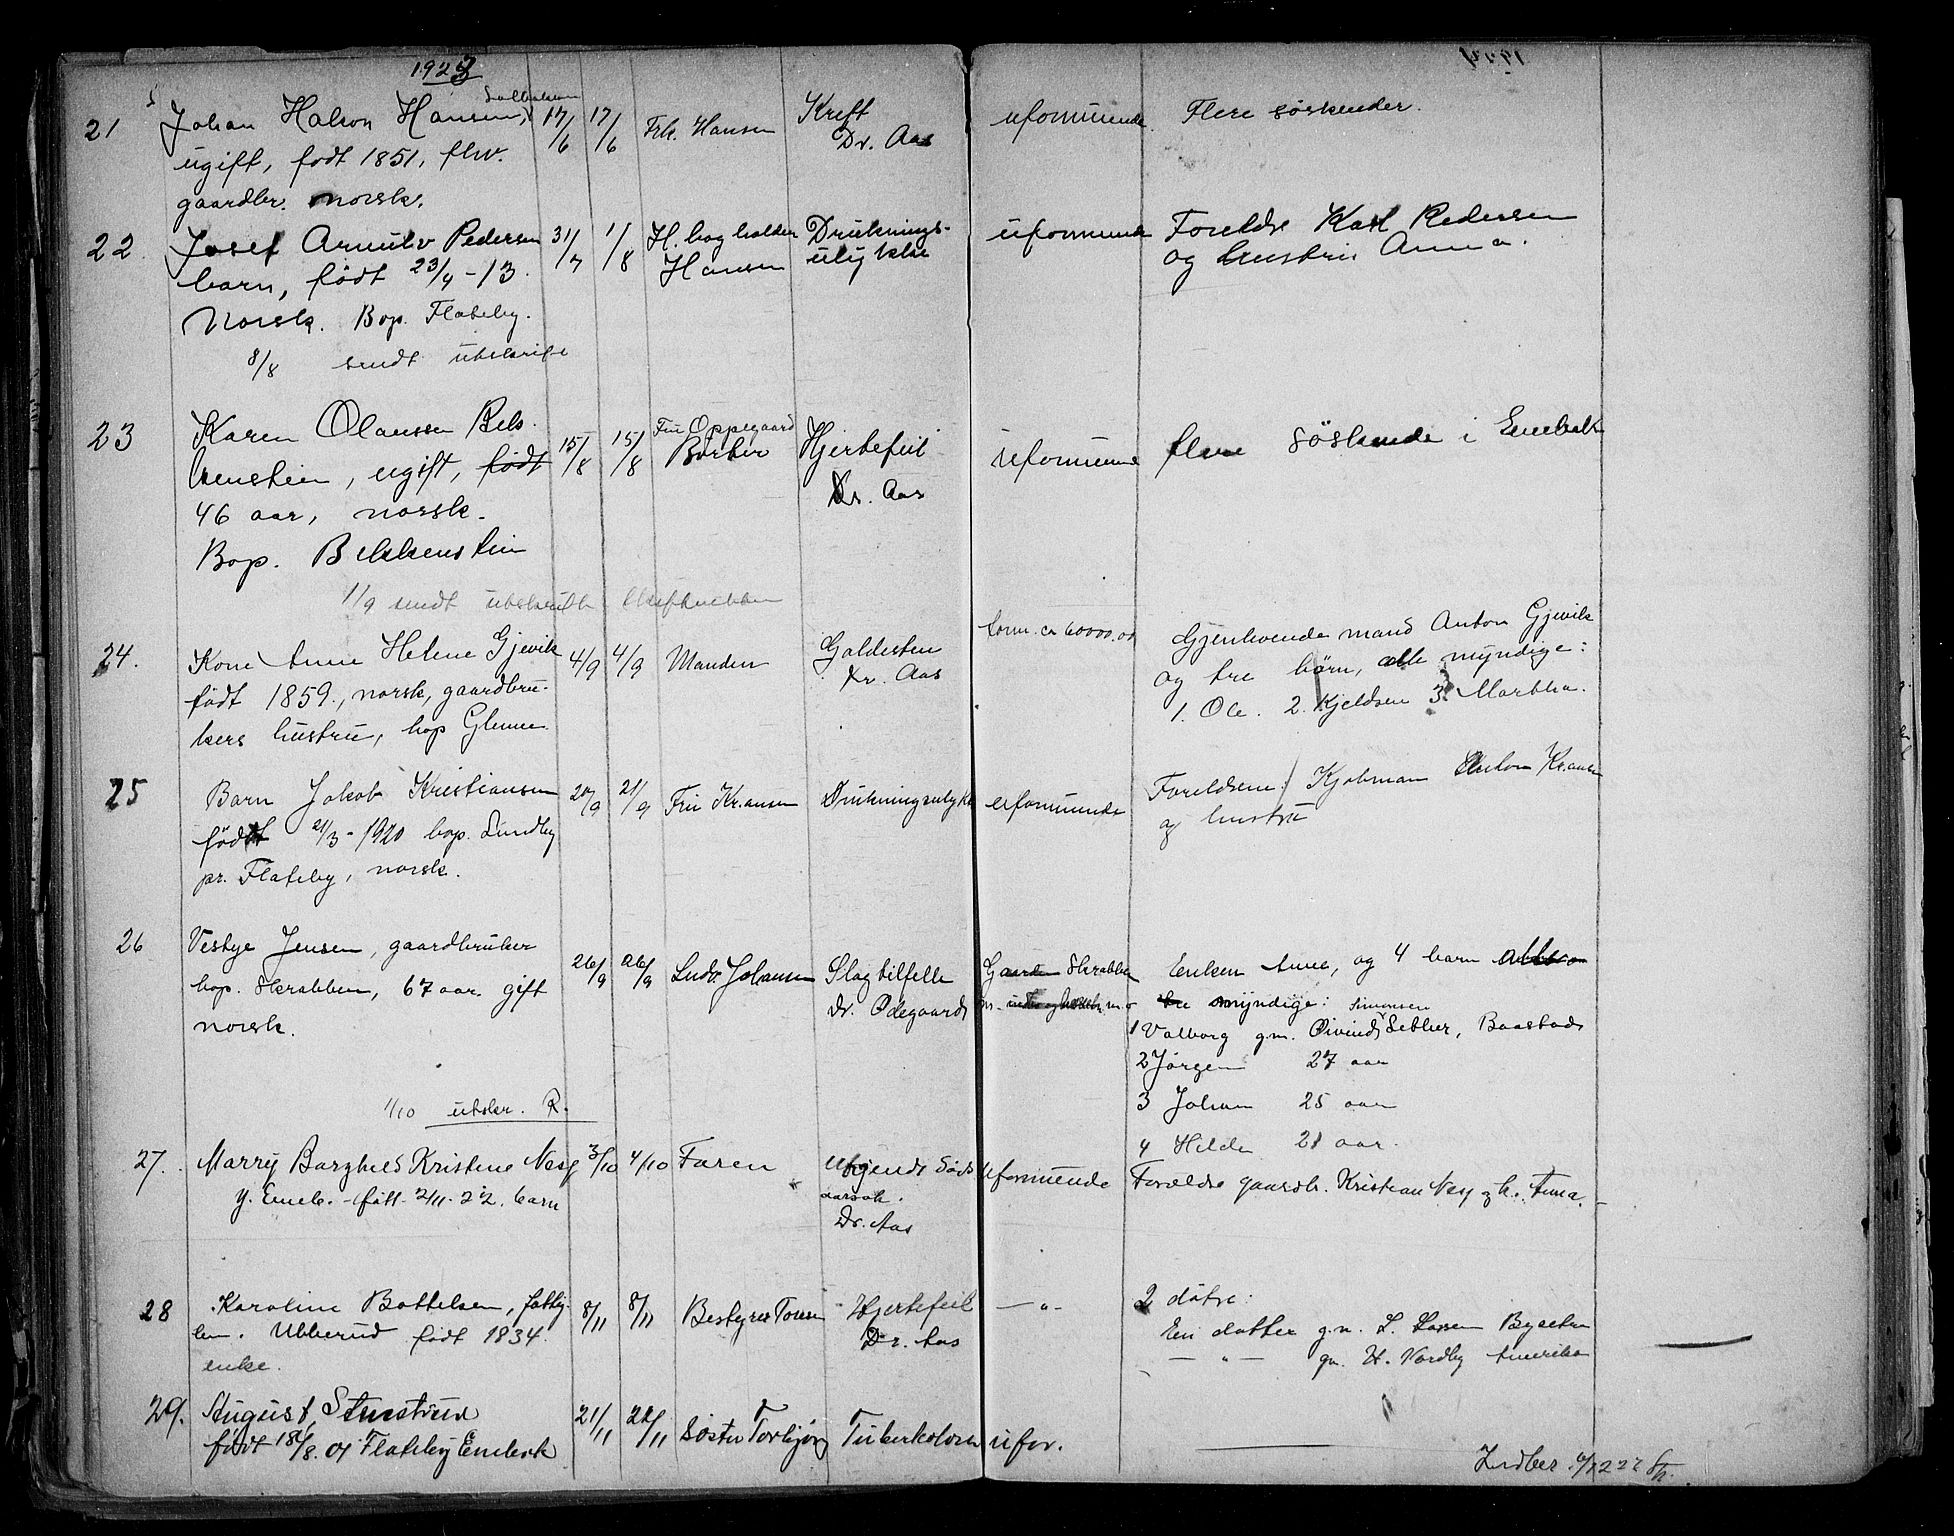 1923
21 Johan Halvor Hansen, 17/6 17/6 Frk. Hansen Kreft uformuende. Flere søskender.
ugift, født 1851, fhv. Dr. Aas
gaardbr. norsk.
22. Josef Arnulv Pedersen 31/7 1/8 H. bogholder Druknings- uformuende Foreldre Karl Pedersen
barn, født 23/4 - 13. Hansen ulykke og hustru Anna.
Norsk. Bop. Flateby.
8/8 sendt utskrift
23 Karen Olaussen Bek- 15/8 15/8 Fru Oppegaard Hjertefeil uformuende flere søskende i Enebak
kenstein, ugift, født Børter Dr. Aas
46 aar, norsk.
Bop. Bekkenstein
1/9 sendt utskrift skifteretten
24. Kone Anne Helene Gjevik 4/9 4/9 Manden Galdesten form. ca 60000.00 Gjenlevende mand Anton Gjevik
født 1859, norsk, gaardbru- Dr. Aas og tre børn, alle myndige:
kers hustru, bop Glenne 1. Ole. 2. Kjeldsen 3. Martha.
25 Barn Jakob Kristiansen 20/9 21/9 Fru Kr.ansen Drukningsulykke uformuende Foreldrene: Kjøbman Anton Kr.ansen
født 21/3 - 1920 bop. Lundby og hustru
pr. Flateby, norsk.
26 Vestye Jensen, gaardbruker 26/9 26/9 Ludv. Johansen Slagtilfelle Gaarden Skrabben Enken Anne, og 4 barn
bop. Skrabben, 67 aar. gift Dr. Ødegaard myndige: Simonsen
norsk. 1 Valborg g.m. Øivind Sether, Baastad
2 Jørgen 27 aar
1/10 utskr. R. 3 Johan 25 aar
4 Hilda 21 aar.
27. Marry Borghild Kristine Nesg 3/10 4/10 Faren Ukjendt døds uformuende Forældre gaardb. Kristian Nesg og h. Anna.
Y. Eneb. - født 2/11. 22. barn aarsak.
Dr. Aas
28 Karoline Bottelsen, fattig- 8/11 8/11 Bestyrer Toresen Hjertefeil — " — 2 døtre:
lem. Ubberud født 1834. Dr. Aas En datter g.m. L. Larsen Bysetra
enke. — " — gm. H. Nordby Amerika
29. August Stustrud 21/11 22/11 Søster Torbjørg Tuberkolose ufor.
født 18/8. 01 Flateby Enebak
Indber.